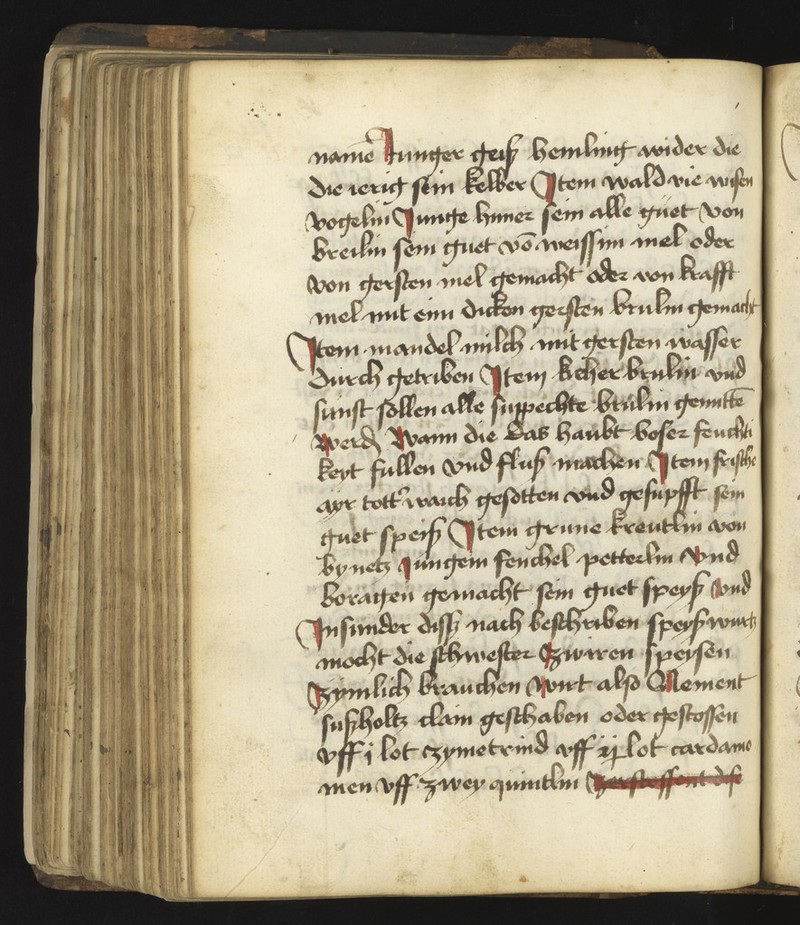 namē Junger geiß hemling wider die
die ierig sein kelber Item wald vie wisen
vogelin Junge huner sein alle guet Von
breilin sein guet vō weissim mel oder
Von gersten mel gemacht oder von krafft
mel mit eim dicken gersten brulin gemacht
Item mandel milch mit gersten wasser
durch getriben Item kicher brulin vnd
sunst sollen alle suppechte brulin gemittē
werdē Wann die das haubt boser feuchti
keyt fullen vnd fluß machen Item frische
ayr tottr waich gesotten vnd gesupfft sein
guet speiß Item grune kreutlin von
bynetz Jungem fenchel petterlin Vnd
boragen gemacht sein guet speyß Vnd
Insunder diss nach beschriben speyß wurtz
mocht die schwester Zwiren speisen
Zymlich brauchen wirt also Nement
sußholtz clain geschaben oder gestossen
vff j lot zymetrind vff ij lot cardamo
men vff zwey quintlin zerstossent dise